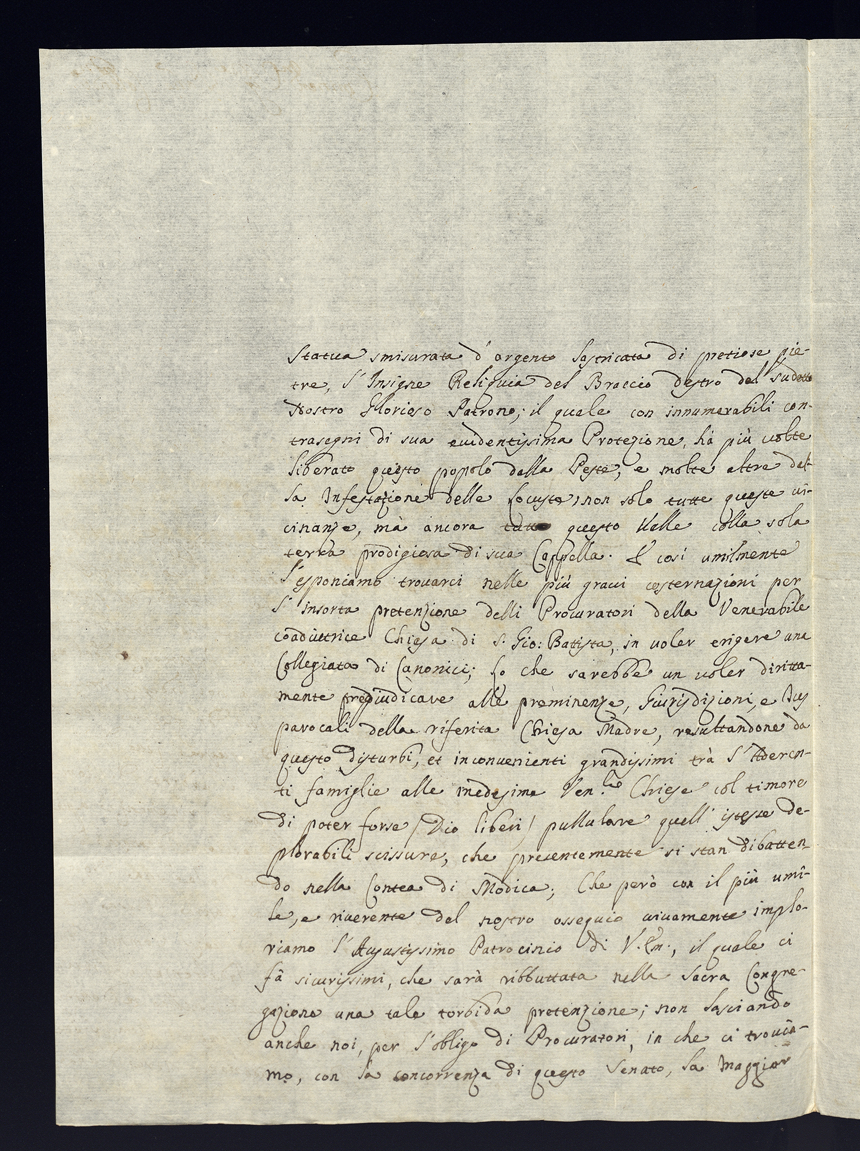 Statua smisurata d'argento lastricata di pretiose pie-
tre, l'Insigne Reliquia del Braccio destro del sudetto
Nostro Glorioso Patrono; il quale con innumerabili con-
trasegni di sua evidentissima Protezione, hà più volte
liberato questo popolo dalla Peste, e molte altre dal-
la Infestazione delle Locuste, non solo tutte queste vi-
cinanze, mà ancora questo Valle colla sola
terra prodigiosa di sua Cappella. E così umilmente
l'esponiamo trovarci nelle più gravi costernazioni per
l'insorta pretenzione delli Procuratori della Venerabile
coadiutrice Chiesa di S. Gio: Batista, in voler erigere una
Collegiata di Canonici; Lo che sarebbe un voler diritta-
mente pregiudicare alle preminenze, Giurisdizioni, e Jus
parocali della riferita Chiesa Madre, resultandone da
questo disturbi, et inconvenienti grandissimi trà l'Aderen-
ti famiglie alle medesime Ven.li Chiese col timore
di poter forse (Dio liberi) pullulare quell'istesse de-
plorabili scissure, che presentemente si stan dibatten-
do nella Contea di Modica; Che però con il più umi-
le, e riverente del nostro ossequio vivamente implo-
riamo l'Augustissimo Patrocinio di V. Em., il quale ci
fà sicurissimi, che sarà ributtata nella Sacra Congre-
gazione una tale torbida pretenzione; non lasciando
anche noi, per l'obligo di Procuratori, in che ci trovia-
mo, con la concorrenza di questo Senato, la Maggior